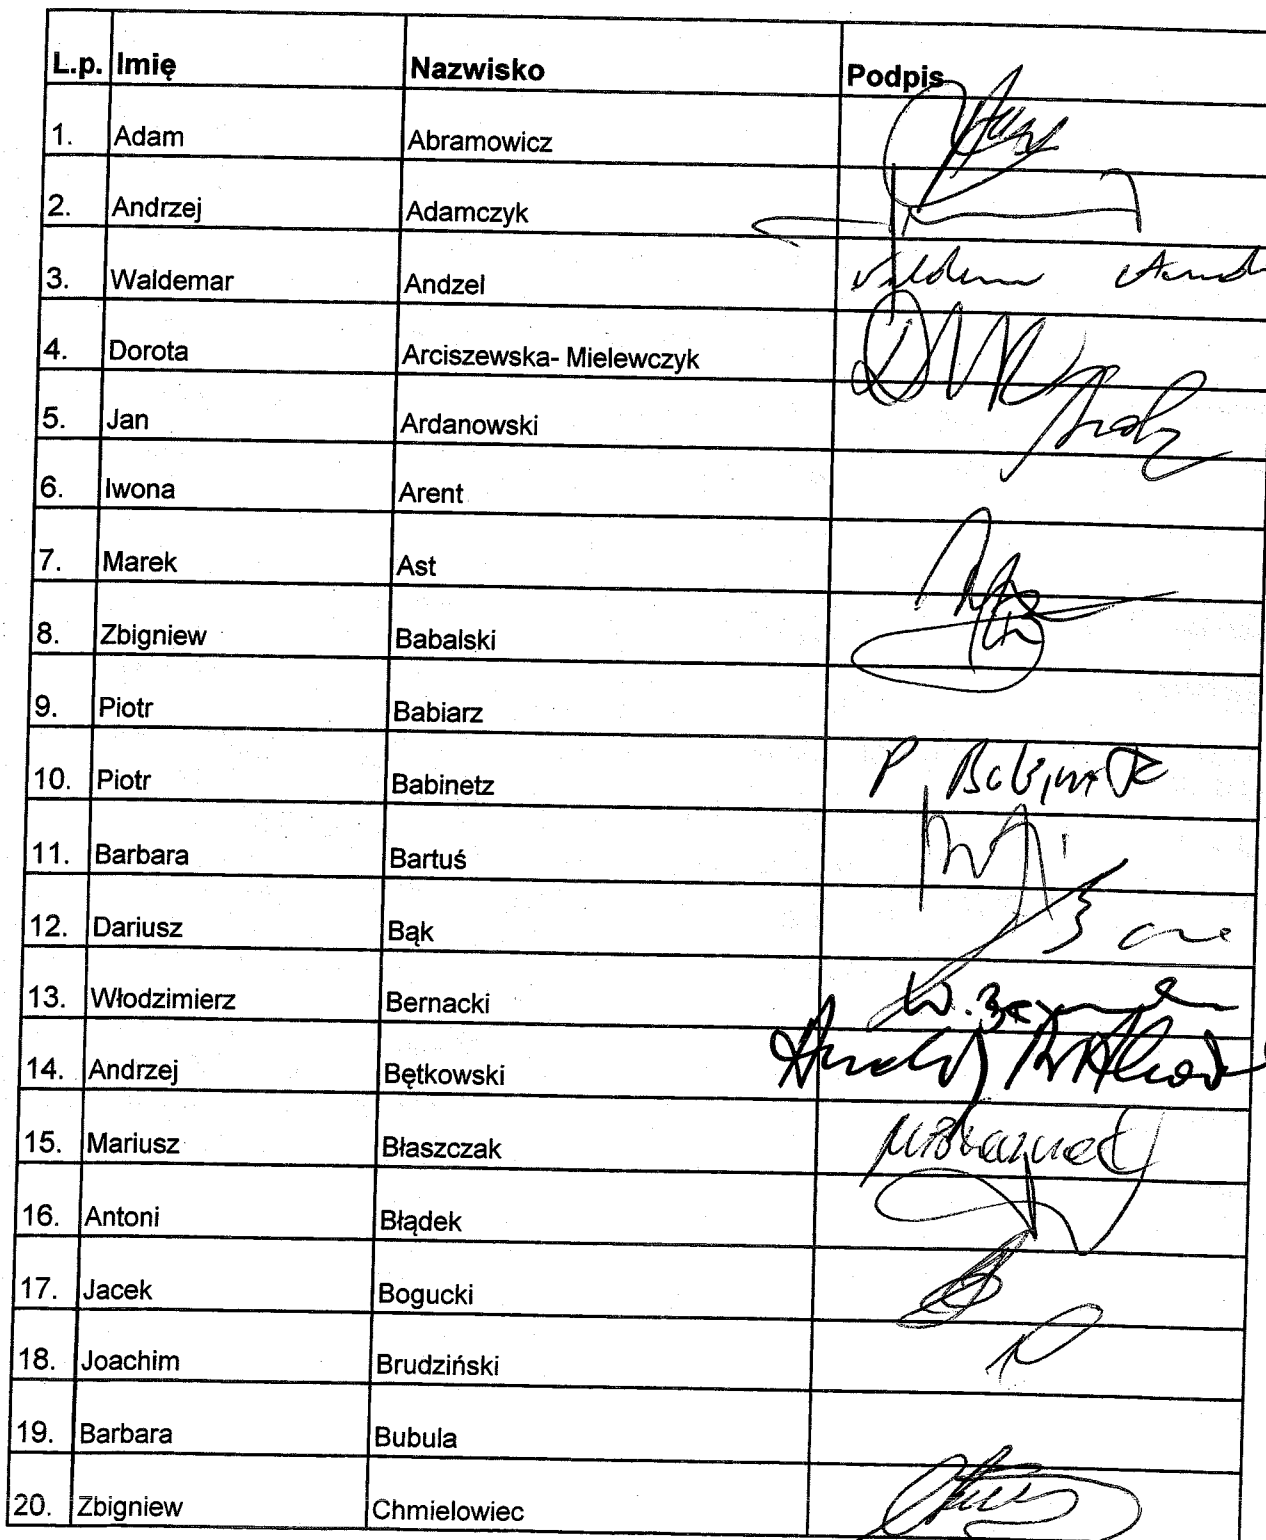 L.p. Imię Nazwisko Podpis
1. Adam Abramowicz
2. Andrzej Adamczyk
3. Waldemar Andzel
4. Dorota Arciszewska- Mielewczyk
5. Jan Ardanowski
6. Iwona Arent
7. Marek Ast
8. Zbigniew Babalski
9. Piotr Babiarz
10. Piotr Babinetz P. Babinetz
11. Barbara Bartuś
12. Dariusz Bąk
13. Włodzimierz Bernacki
14. Andrzej Bętkowski
15. Mariusz Błaszczak
16. Antoni Błądek
17. Jacek Bogucki
18. Joachim Brudziński
19. Barbara Bubula
20. Zbigniew Chmielowiec